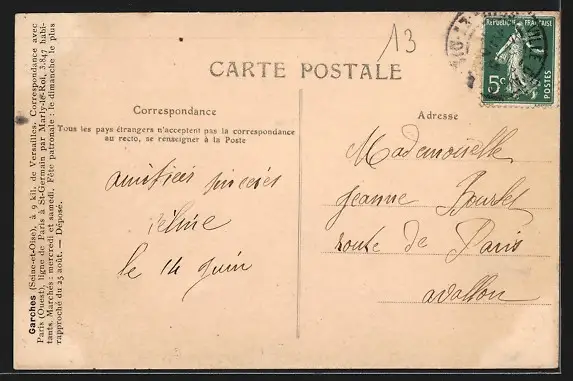 13
RÉPUBLIQUE FRANÇAISE
5c
POSTES
CARTE POSTALE
Correspondance
Tous les pays étrangers n'acceptent pas la correspondance
au recto, se renseigner à la Poste
amitiés sincères
le 14 juin
Adresse
Mademoiselle
Jeanne
route de Paris
avallon
Garches (Seine-et-Oise), à 9 kil. de Versailles. Correspondance avec
Paris (Ouest), ligne de Paris à St-Germain par Marly-le-Roi, 3.847 habi-
tants. Marchés : mercredi et samedi. Fête patronale : le dimanche le plus
rapproché du 25 août. — Déposé.